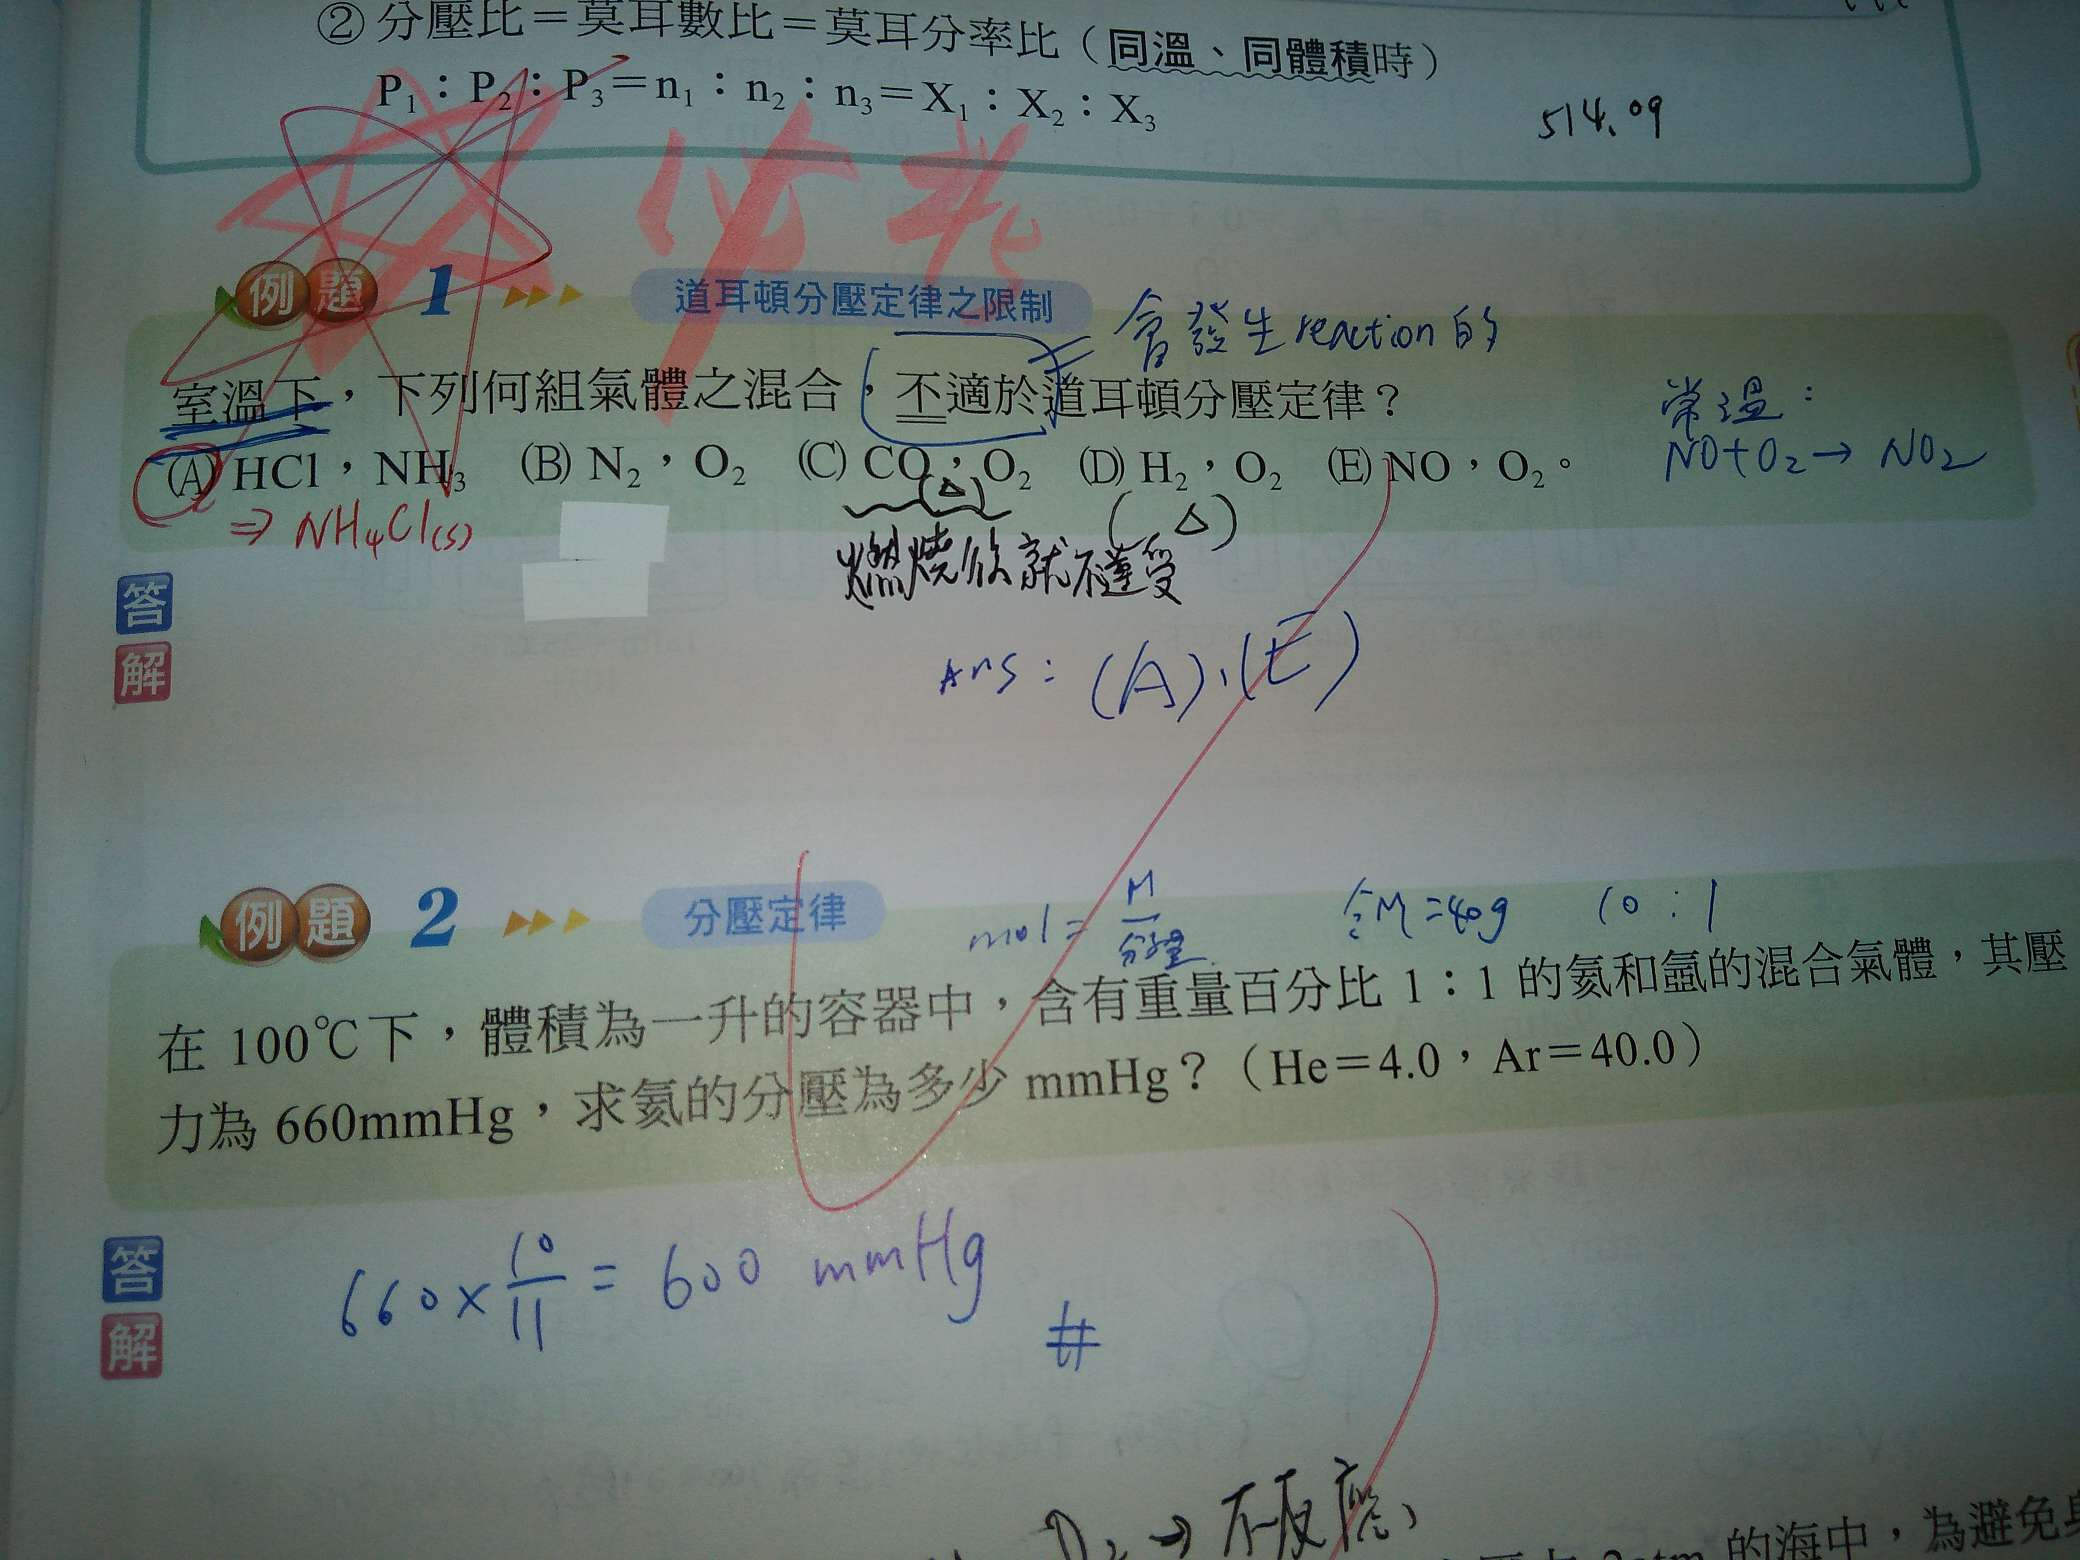 ② 分壓比＝莫耳數比＝莫耳分率比（同溫、同體積時）
P₁：P₂：P₃＝n₁：n₂：n₃＝X₁：X₂：X₃
514.09
必考
例題 1 道耳頓分壓定律之限制
會發生reaction的
室溫下，下列何組氣體之混合，不適於道耳頓分壓定律？
常溫：
(A) HCl，NH₃ (B) N₂，O₂ (C) CO，O₂ (D) H₂，O₂ (E) NO，O₂。
NO+O₂→NO₂
(△)
(△)
⇒ NH₄Cl(s)
燃燒後就不遵受
答
解
Ans：(A)、(E)
例題 2 分壓定律
mol = M/分子量
令M=40g 10:1
在 100℃下，體積為一升的容器中，含有重量百分比 1：1 的氦和氬的混合氣體，其壓
力為 660mmHg，求氦的分壓為多少 mmHg？（He＝4.0，Ar＝40.0）
答
660×10/11=600 mmHg #
解
→不反應、
的海中，為避免